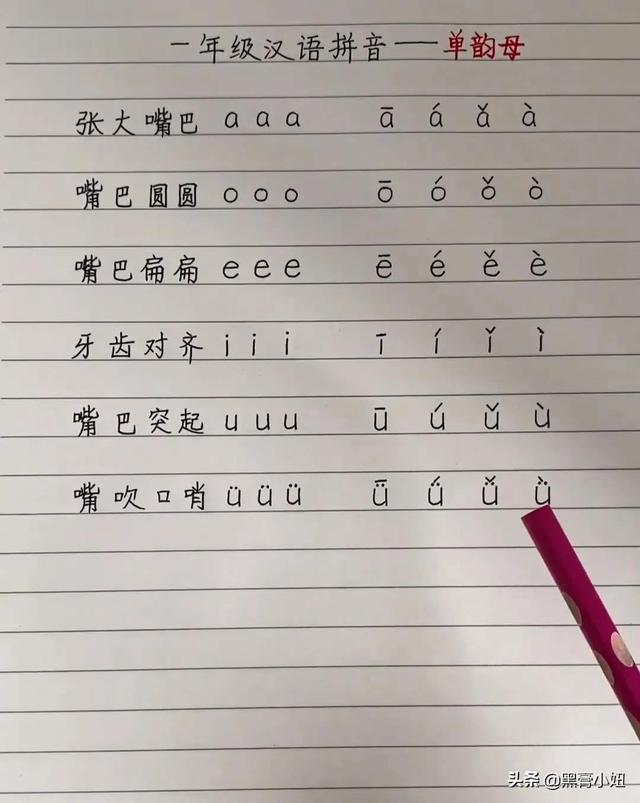 一年级汉语拼音——单韵母
张大嘴巴 a a a ā á ǎ à
嘴巴圆圆 o o o ō ó ǒ ò
嘴巴扁扁 e e e ē é ě è
牙齿对齐 i i i ī í ǐ ì
嘴巴突起 u u u ū ú ǔ ù
嘴吹口哨 ü ü ü ǖ ǘ ǚ ǜ
头条 @黑膏小妞